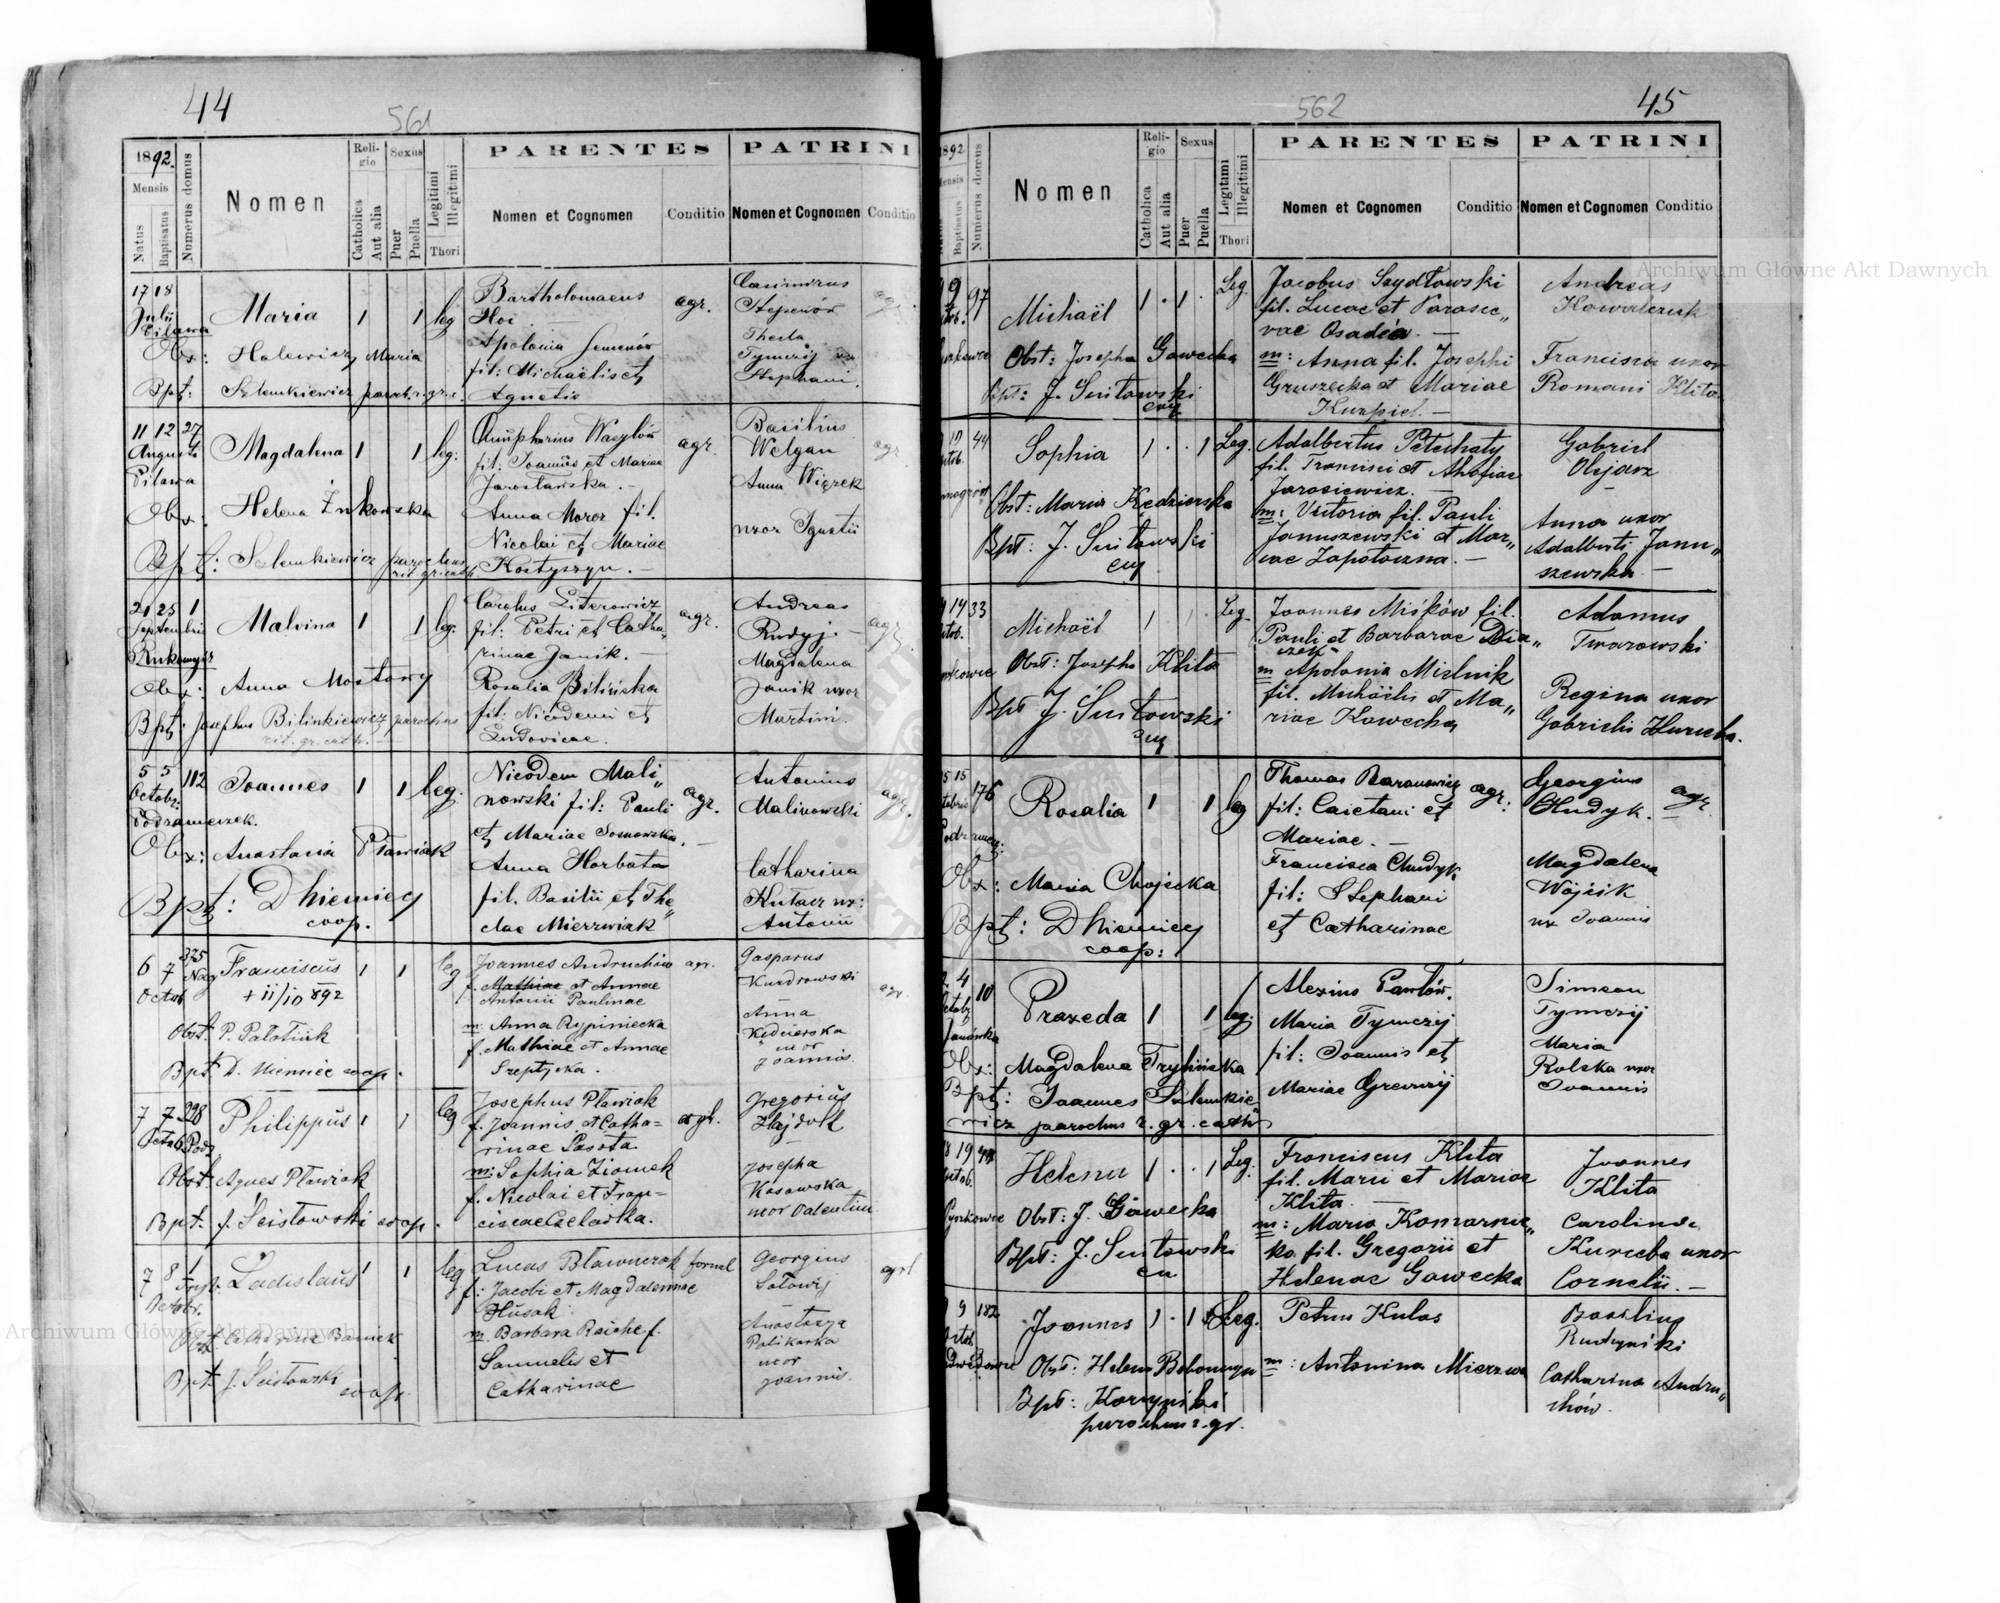 44
561
1892.
Mensis
Natus
Baptisatus
Numerus domus
Nomen
Religio
Catholica
Aut alia
Sexus
Puer
Puella
Legitimi
Illegitimi
Thori
PARENTES
Nomen et Cognomen
Conditio
PATRINI
Nomen et Cognomen
Conditio
17 18
Julii
Pilawa
Maria 1 1 leg
Bartholomaeus
Hoi
Apolonia Semenów
fil: Michaëlis et
Agnetis
agr.
Casimirus
Stepanów
Thecla
Tymczij ux
Stephani.
Obx: Halewicz Maria
Bpt: Szlemkiewicz paroch. r. gr. c.
11 12 27
Augusti
Pilawa
Magdalena 1 1 leg:
Onuphrius Wasylów
fil: Joannis et Mariae
Jarosławska.
Anna Moroz fil.
Nicolai et Mariae
Kostyszyn.
agr.
Basilius
Welgan
Anna Wiązek
uxor Ignatii
agr.
Obx: Helena Żukowska
Bpt: Szlemkiewicz parochus
rit. gr. cath.
21 25 1
Septembris
Malvina 1 1 leg.
Carolus Literowicz
fil: Petri et Catha,
rinae Janik.
Rosalia Bilińska
fil: Nicodemi et
Ludovicae.
agr.
Andreas
Rudyj.
Magdalena
Janik uxor
Martini.
agr.
Obx: Anna Mostowy
Bpt: Josephus Bilinkiewicz parochus
rit. gr. cath.
5 5 112
Octobr:
Podzameczek.
Joannes 1 1 leg.
Nicodem Mali„
nowski fil: Pauli
et Mariae Sosnowska.
Anna Horbata
fil. Basilii et The„
clae Mierzwiak
agr.
Antonius
Malinowski
Catharina
Kutacz ux:
Antonii
agr.
Obx: Anastasia Pławiak
Bpt: Dhiemiec
coop.
6 7 325
Octob Nag
Franciscus 1 1 leg
+ 11/10 892
Joannes Andruchów agr.
f. Mathiae et Annae
Antonii Paulinae
m. Anna Rypiniecka
f. Mathiae et Annae
Szeptycka.
Gasparus
Kundrowski
Anna
Kędzierska
uxor
Joannis.
agr.
Obst. P. Palatiuk
Bpt. D. Niemiec coop.
7 7 398
Octob Podz.
Philippus 1 1 leg
Josephus Pławiak
f. Joannis et Catha=
rinae Lasota
m: Sophia Ziomek
f. Nicolai et Fran=
ciscae Czeladka.
agl.
Gregorius
Hajduk
Josepha
Kosowska
uxor Valentini
Obst. Agnes Pławiak
Bpt. J. Świstowski coop.
7 8 1
Octobr.
Ladislaus 1 1 leg
Lucas Bławuczak fornal
f: Jacobi et Magdalennae
Husak
m. Barbara Raiche f.
Samuelis et
Catharinae
Georgius
Sołowij
Anastasya
Polikarka
uxor
Joannis.
agrl
Obst. Catharina Baniek
Bpt. J. Świstowski coop
562
45
1892
Mensis
Natus
Baptisatus
Numerus domus
Nomen
Religio
Catholica
Aut alia
Sexus
Puer
Puella
Legitimi
Illegitimi
Thori
PARENTES
Nomen et Cognomen
Conditio
PATRINI
Nomen et Cognomen
Conditio
9 97
Michaël 1 . 1 . Leg.
Jacobus Szydłowski
fil. Lucae et Parasce„
vae Osadca.
m: Anna fil. Josephi
Gruszecka et Mariae
Kurpiel.
Andreas
Kowalczuk
Francisca uxor
Romani Klita
Obst: Josepha Gawecka
Bpt: J. Świstowski
coop
12 44
Sophia 1 . . 1 Leg.
Adalbertus Petechaty
fil. Francisci et Ahafiae
Jarosiewicz.
m: Victoria fil. Pauli
Januszewski et Mar„
iae Zapotoczna.
Gabriel
Olejarz
Anna uxor
Adalberti Janu„
szewska
Obst: Maria Kędzierska
Bpt: J. Świstowski
coop
14 33
Michaël 1 Leg
Joannes Miśków fil.
Pauli et Barbarae Dia„
czek
m Apolonia Mielnik
fil. Michaëlis et Ma„
riae Kawecka
Adamus
Twarowski
Regina uxor
Gabrielis Kureeba.
Obst: Josepha Klita
Bpt J. Świstowski
coop
15 15 176
Rosalia 1 1 leg
Thomas Baranowicz
fil: Caietani et
Mariae.
Francisca Chudyk
fil: Stephani
et Catharinae
agr:
Georgius
Chudyk.
Magdalena
Wójcik
ux Joannis
agr
Obx: Maria Chojecka
Bpt: Dhiemiec
coop:
4 10
Praxeda 1 1 leg:
Alexius Pawlów.
Maria Tymczij
fil: Joannis et
Mariae Grewzij
Simeon
Tymczij
Maria
Rolska uxor
Joannis
Obx: Magdalena Trylińska
Bpt: Joannes Szlemkie„
wicz parochus r. gr. cath
18 19 44
Helena 1 . . 1 Leg.
Franciscus Klita
fil. Marii et Mariae
Klita
m: Maria Komarnic„
ka fil. Gregorii et
Helenae Gawecka
Joannes
Klita
Carolina
Kureeba uxor
Cornelii.
Obst: J. Gawecka
Bpt: J. Świstowski
9 182
Joannes 1 . 1 Leg.
Petrus Kulas
m: Antonina Mierzwa
Basilius
Rudyński
Catharina Andru„
chów.
Obst: Helena Bohomyn
Bpt: Korzyński
parochus r. gr.
Archiwum Główne Akt Dawnych
Archiwum Główne Akt Dawnych